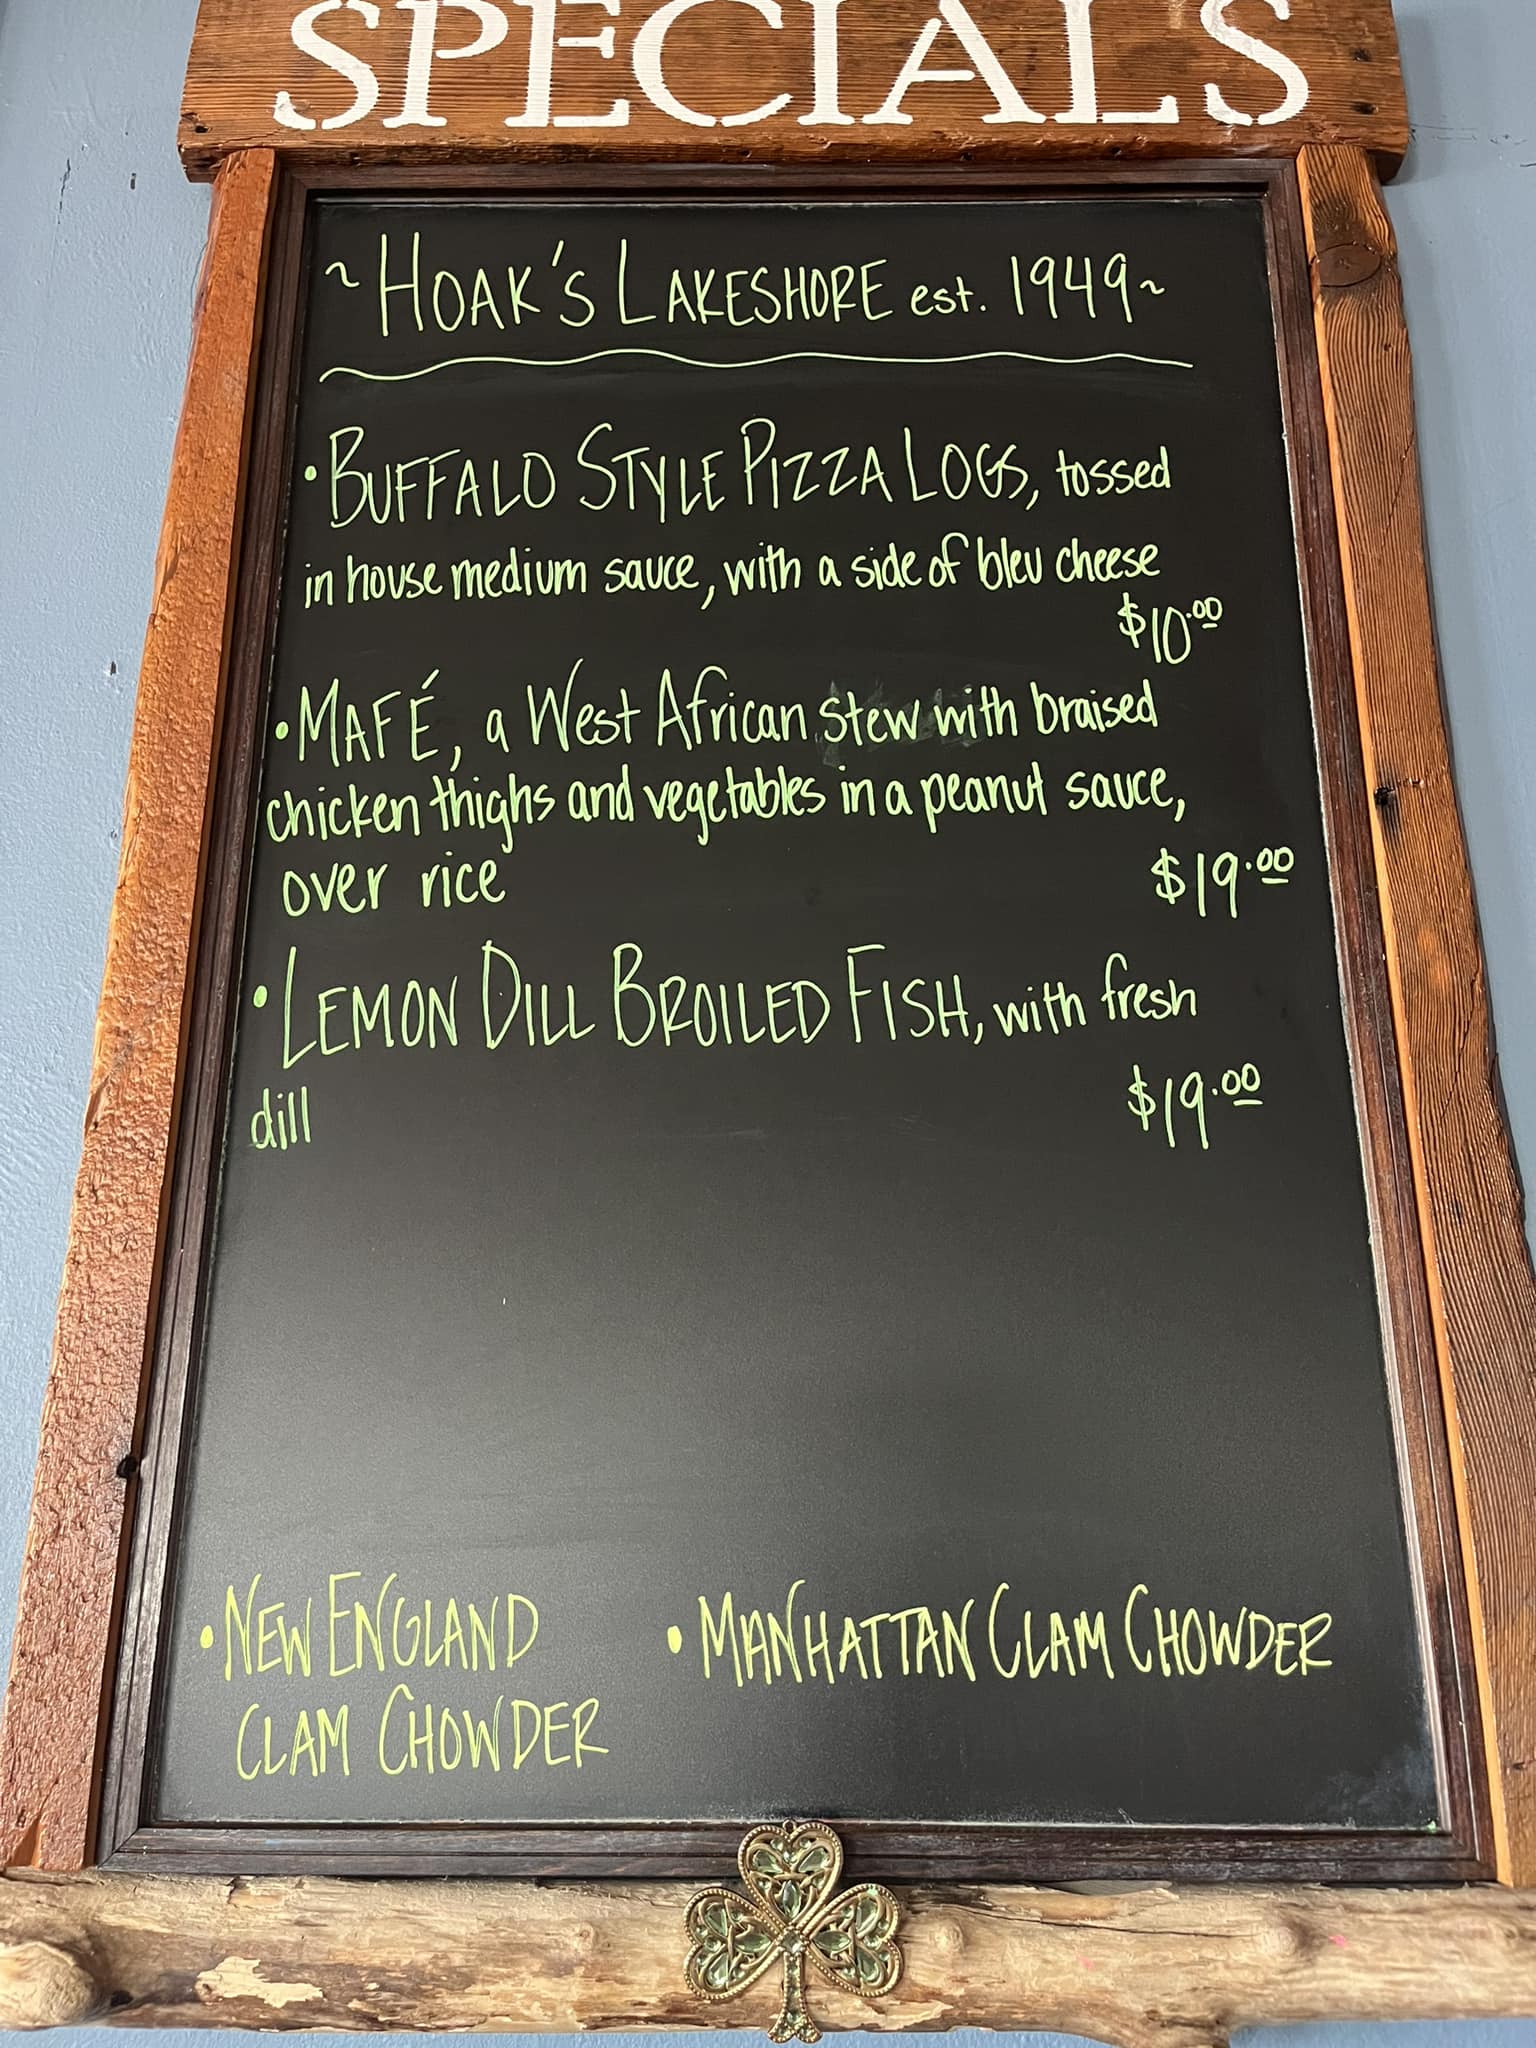 SPECIALS
~ HOAK'S LAKESHORE est. 1949 ~
• BUFFALO STYLE PIZZA LOGS, tossed
in house medium sauce, with a side of bleu cheese
$10.00
• MAFÉ, a West African stew with braised
chicken thighs and vegetables in a peanut sauce,
over rice $19.00
• LEMON DILL BROILED FISH, with fresh
dill $19.00
• NEW ENGLAND
CLAM CHOWDER
• MANHATTAN CLAM CHOWDER